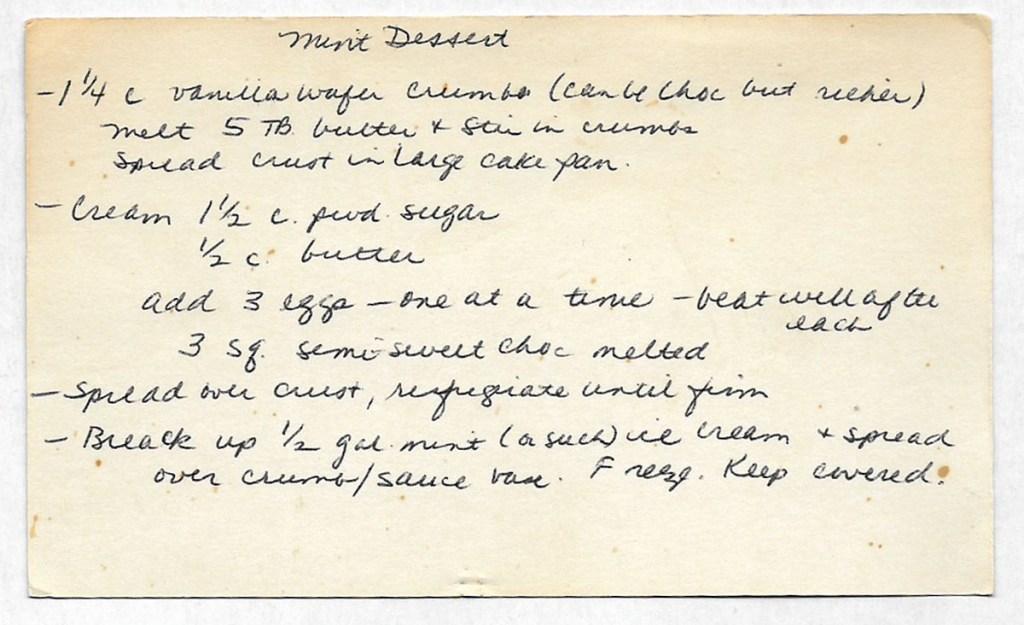 Mint Dessert
- 1 1/4 c vanilla wafer crumbs (can be choc but richer)
melt 5 TB butter + stir in crumbs
Spread crust in large cake pan.
- Cream 1 1/2 c. pwd. sugar
1/2 c. butter
add 3 eggs - one at a time - beat well after
each
3 sq. semi-sweet choc melted
- Spread over crust, refrigerate until firm
- Break up 1/2 gal mint (or such) ice cream + spread
over crumb/sauce base. Freeze. Keep covered.